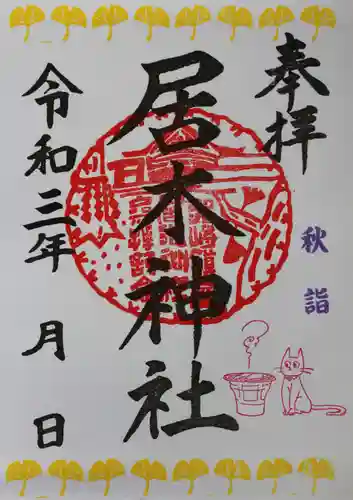 奉拝
秋詣
居木神社
令和三年 月 日